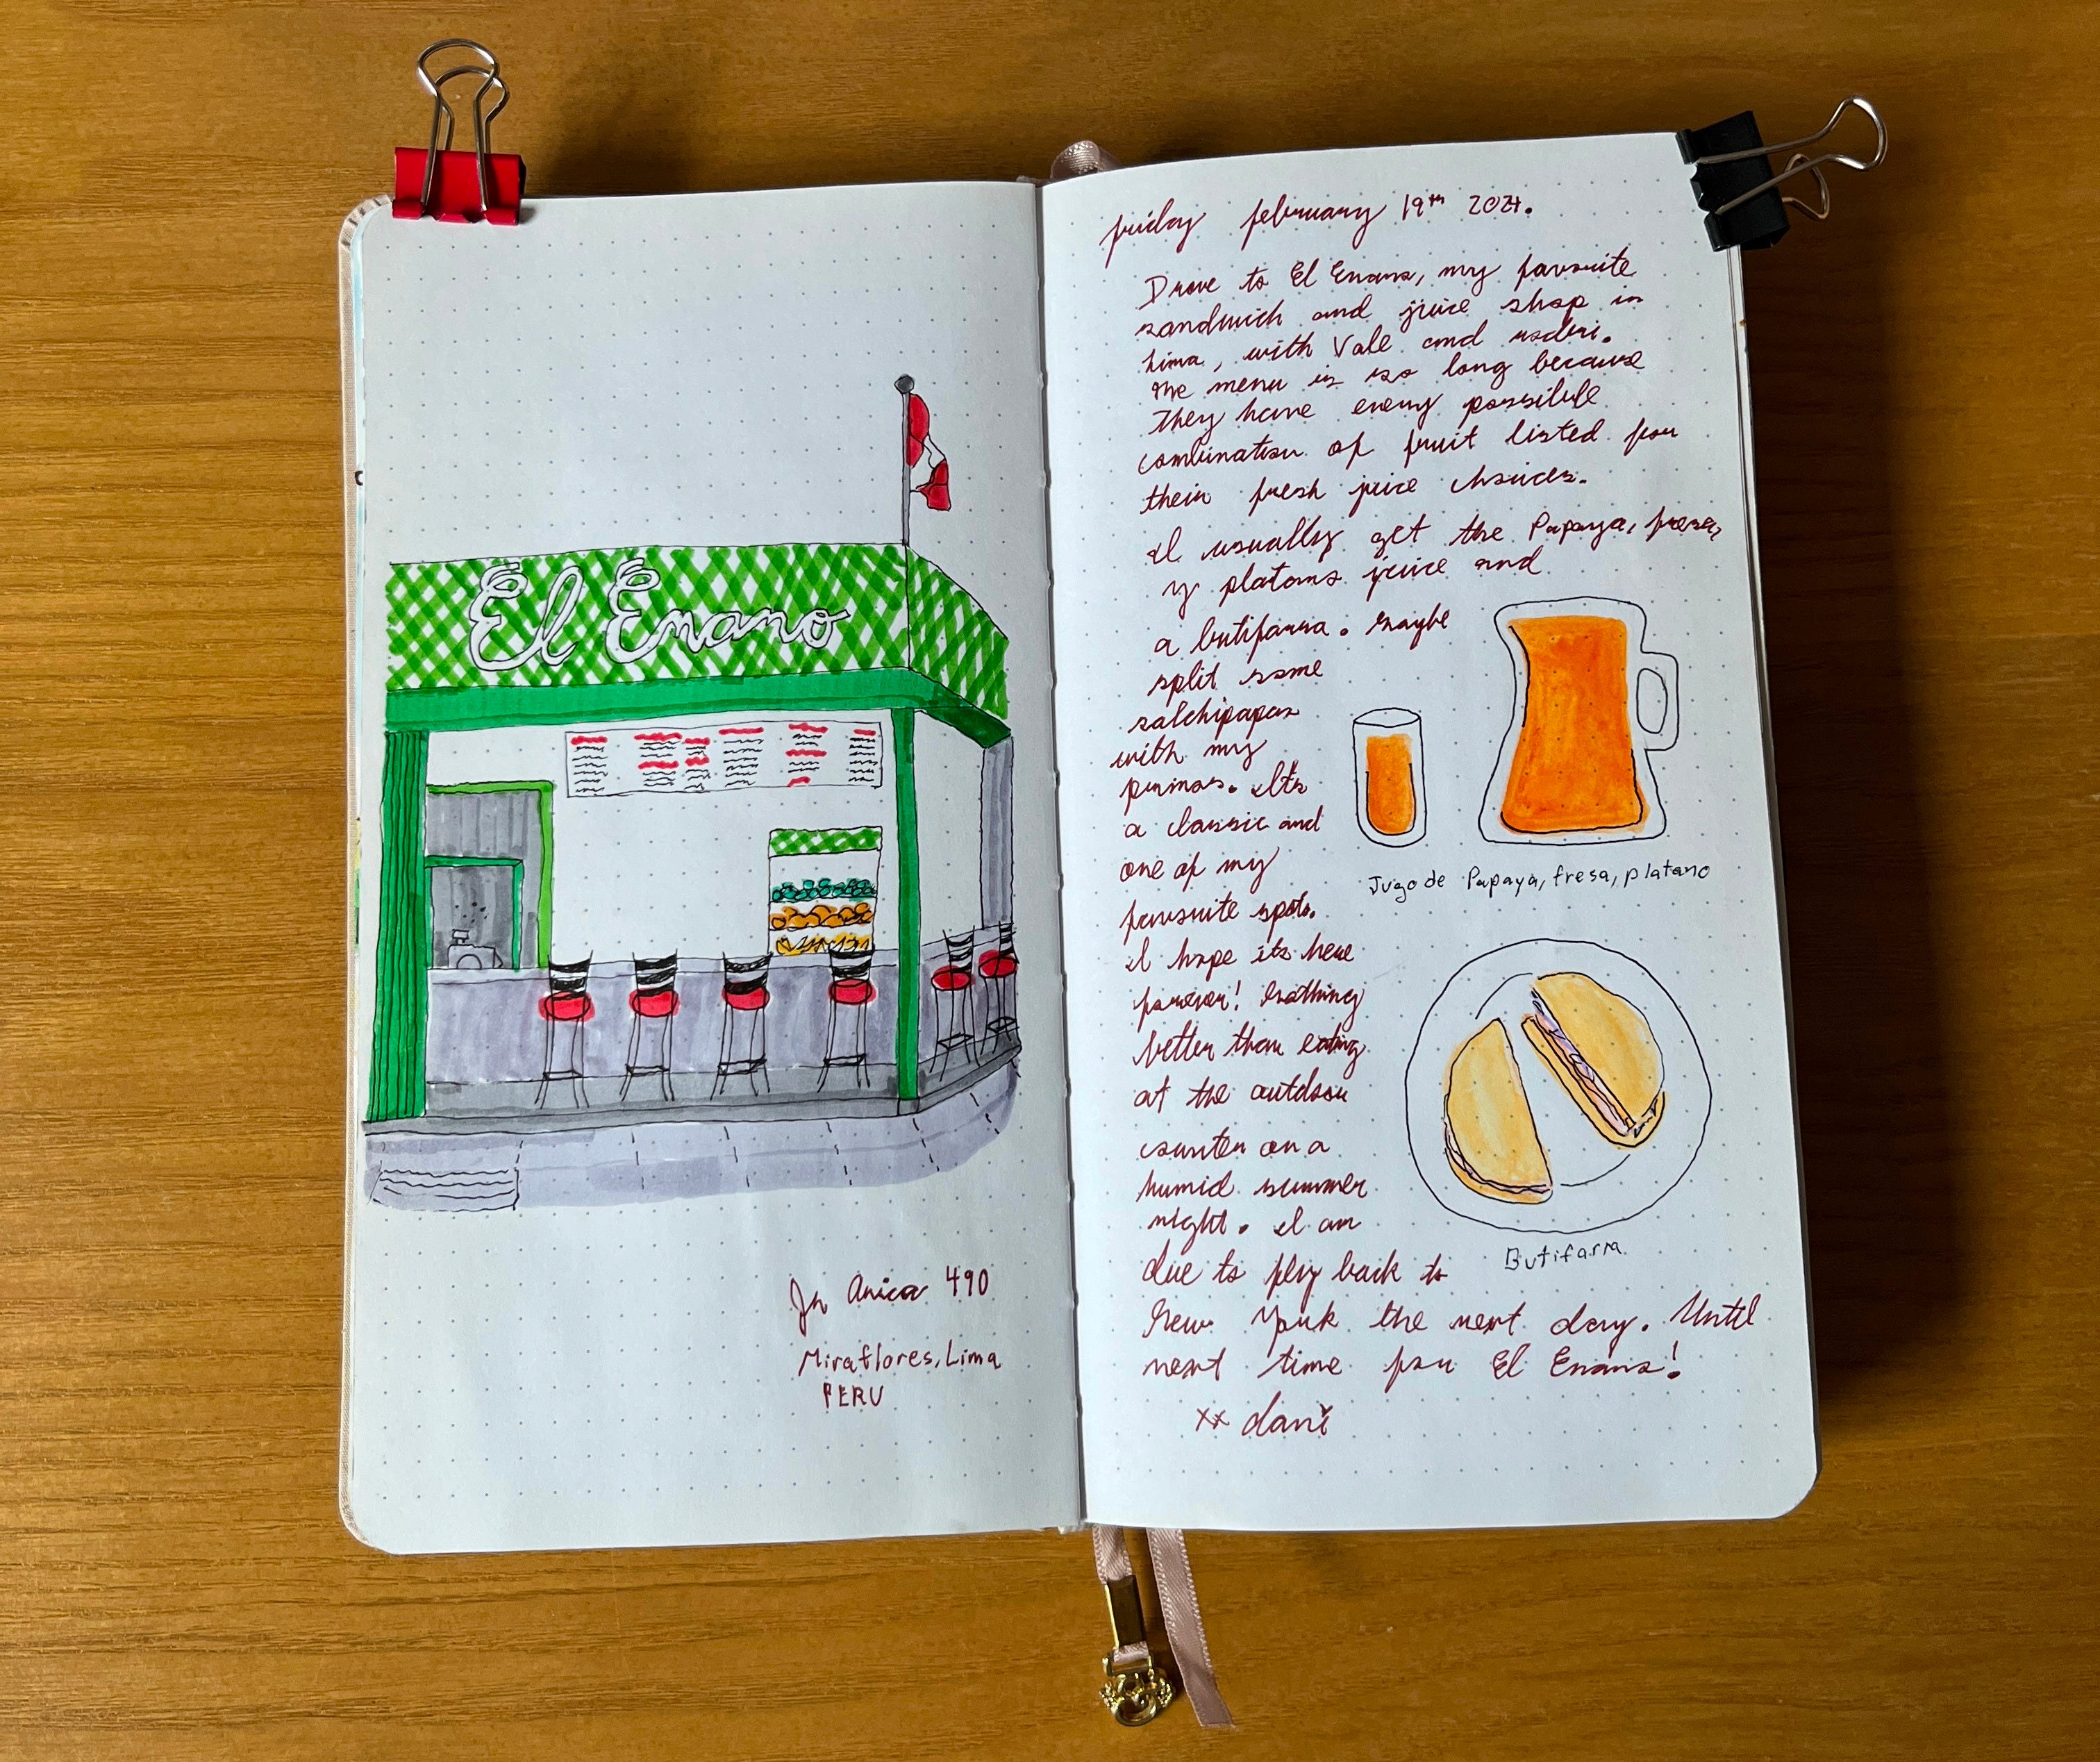 El Enano
Jr Arica 490
Miraflores, Lima
PERU
friday february 19th 2021.
Drove to El Enano, my favorite
sandwich and juice shop in
Lima, with Vale and rodri.
The menu is so long because
they have every possible
combination of fruit listed for
their fresh juice choices.
I usually get the Papaya, fresa,
y platano juice and
a butifarra. Maybe
split some
salchipapas
with my
primas. It's
a classic and
one of my
favorite spots.
I hope its here
forever! Nothing
better than eating
at the outdoor
counter on a
humid summer
night. I am
due to fly back to
New York the next day. Until
next time for El Enano!
xx dani
Jugo de Papaya, fresa, platano
Butifarra